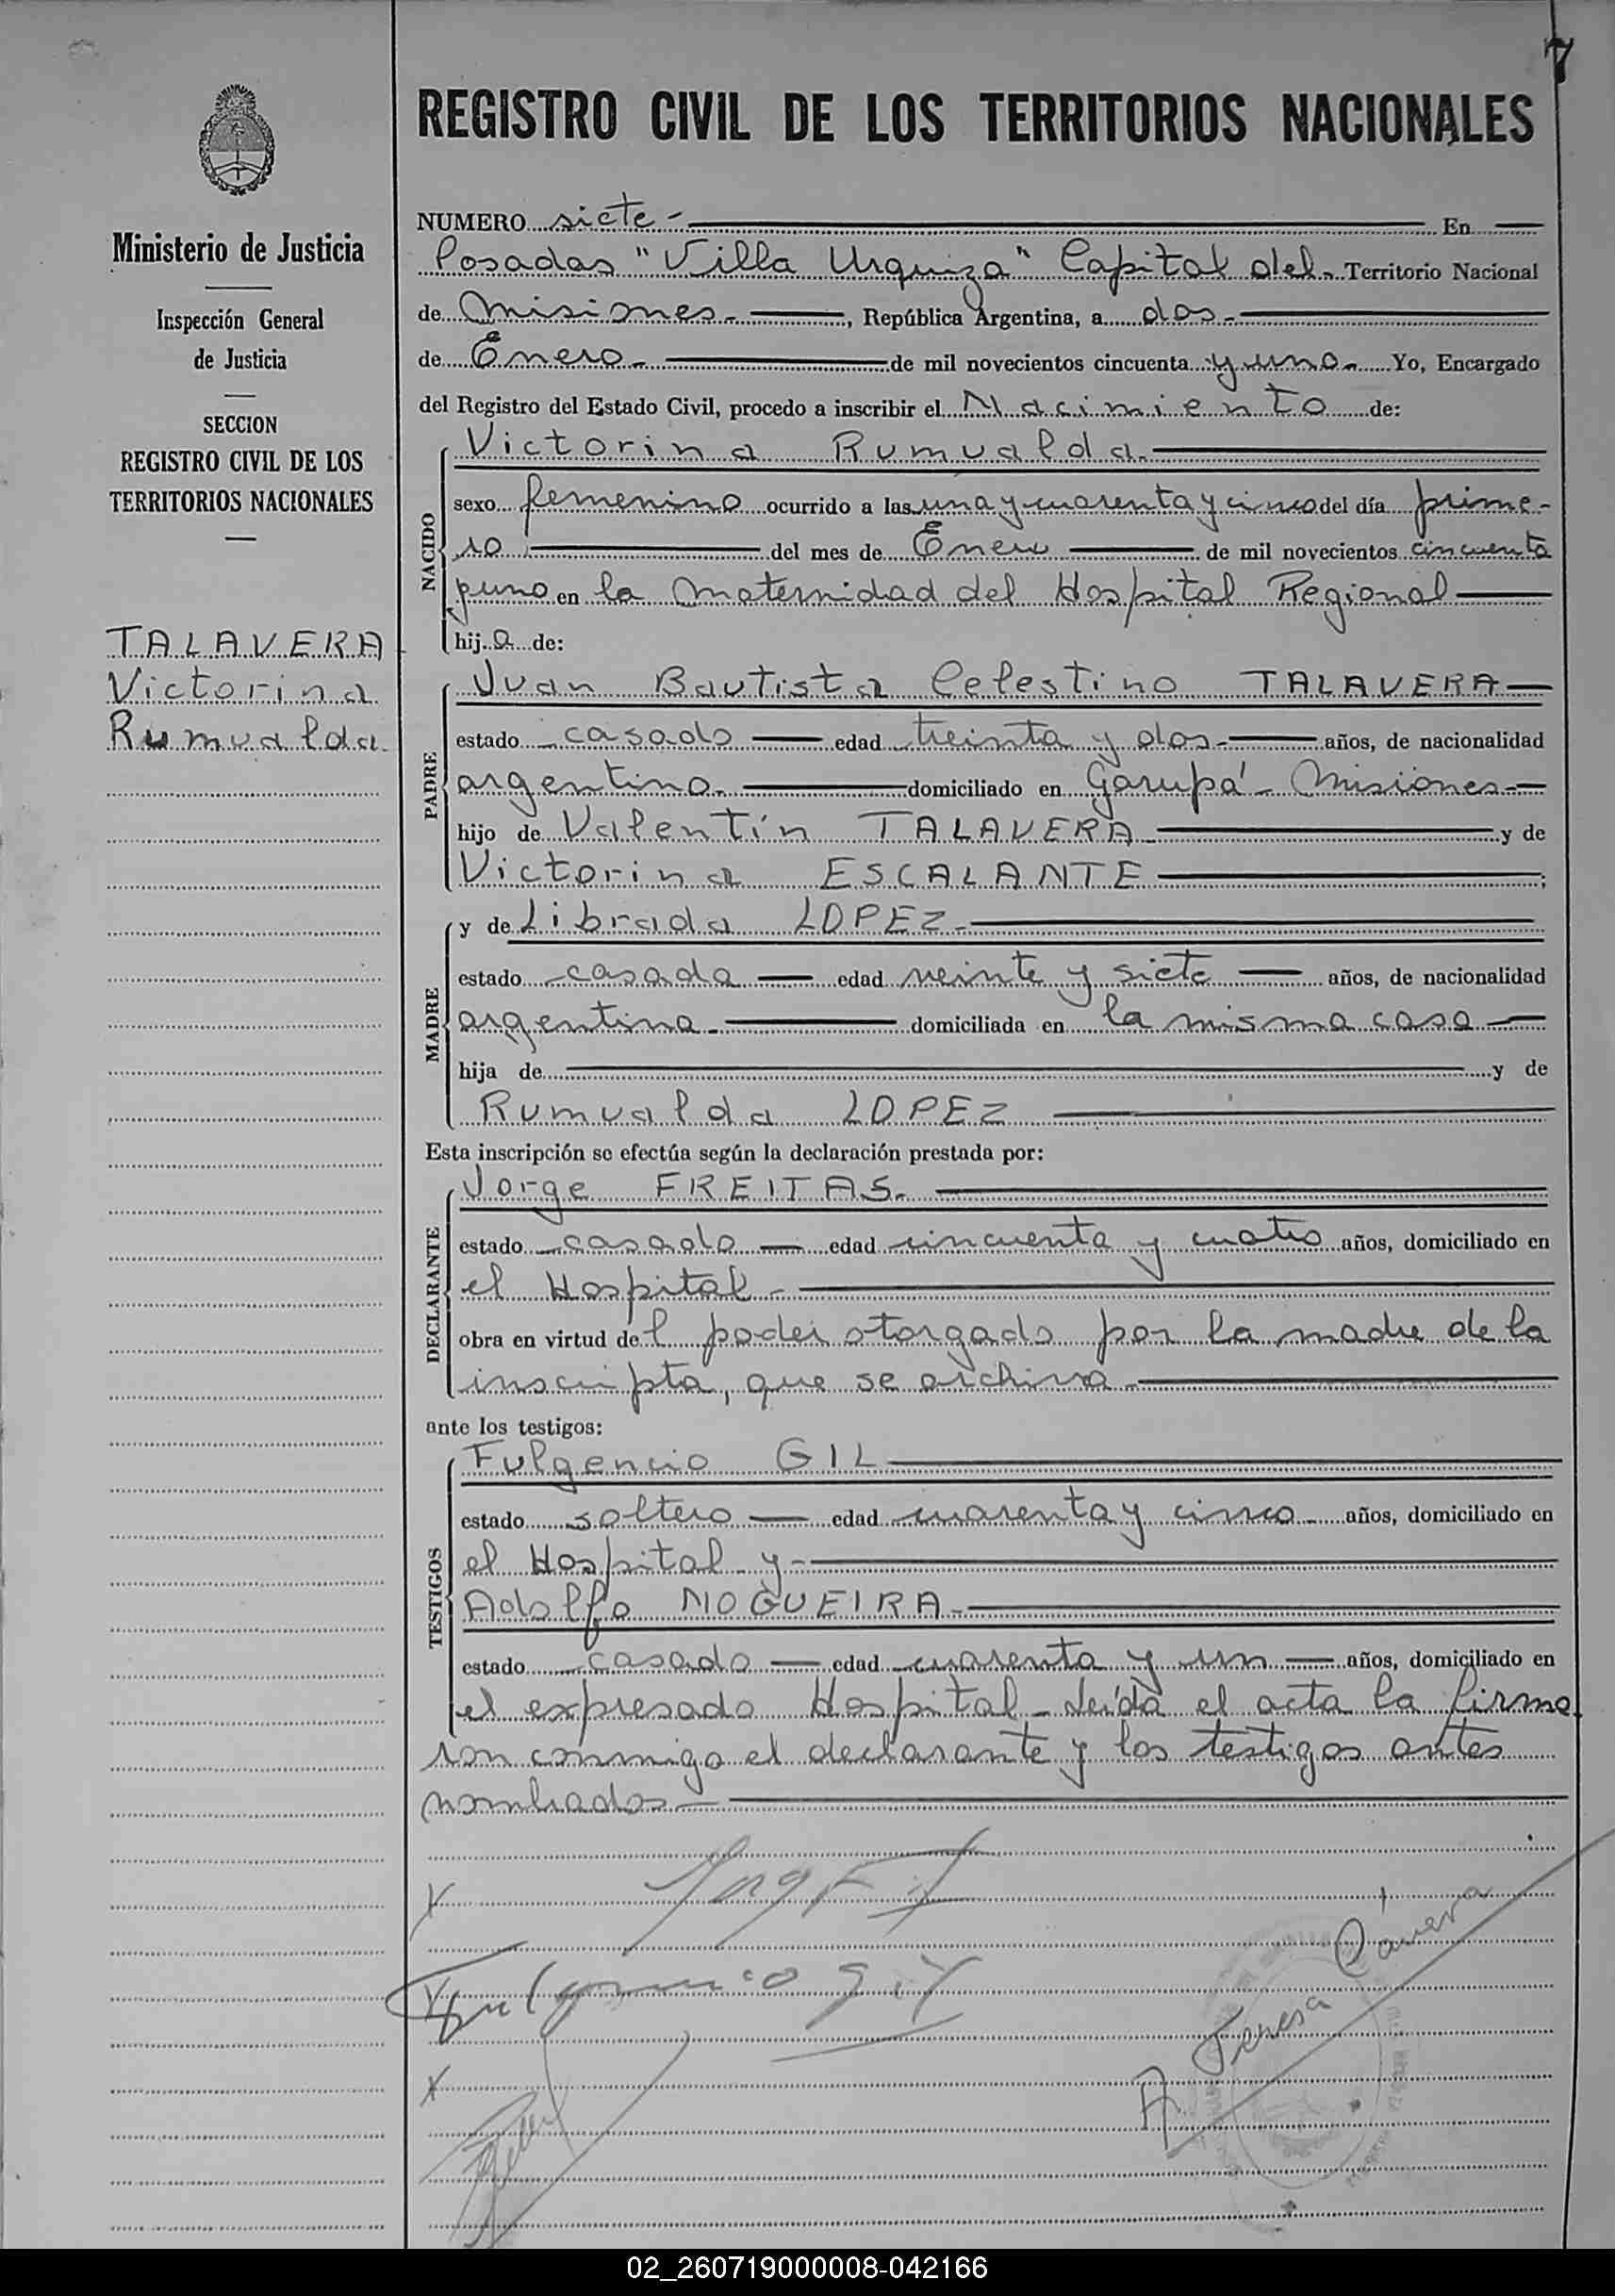 7
REGISTRO CIVIL DE LOS TERRITORIOS NACIONALES
Ministerio de Justicia
Inspección General
de Justicia
SECCION
REGISTRO CIVIL DE LOS
TERRITORIOS NACIONALES
TALAVERA
Victorina
Rumualda
NUMERO siete - En
Posadas "Villa Urquiza" Capital del Territorio Nacional
de Misiones -, República Argentina, a dos -
de Enero - de mil novecientos cincuenta y uno - Yo, Encargado
del Registro del Estado Civil, procedo a inscribir el Nacimiento de:
NACIDO
Victorina Rumualda -
sexo femenino ocurrido a las una y cuarenta y cinco del día prime-
ro del mes de Enero de mil novecientos cincuenta
y uno en la Maternidad del Hospital Regional
hija de:
PADRE
Juan Bautista Celestino TALAVERA
estado casado edad treinta y dos - años, de nacionalidad
argentino - domiciliado en Garupá - Misiones -
hijo de Valentín TALAVERA y de
Victorina ESCALANTE ;
MADRE
y de Librada LOPEZ -
estado casada edad veinte y siete años, de nacionalidad
argentina - domiciliada en la misma casa
hija de y de
Rumualda LOPEZ
Esta inscripción se efectúa según la declaración prestada por:
DECLARANTE
Jorge FREITAS -
estado casado edad cincuenta y cuatro años, domiciliado en
el Hospital -
obra en virtud del poder otorgado por la madre de la
inscripta, que se archiva -
ante los testigos:
TESTIGOS
Fulgencio GIL
estado soltero edad cuarenta y cinco - años, domiciliado en
el Hospital y -
Adolfo NOGUEIRA -
estado casado edad cuarenta y un años, domiciliado en
el expresado Hospital - Leída el acta la firma
ron conmigo el declarante y los testigos antes
nombrados -
x
x Fulgencio Gil
x
A Teresa
02_260719000008-042166